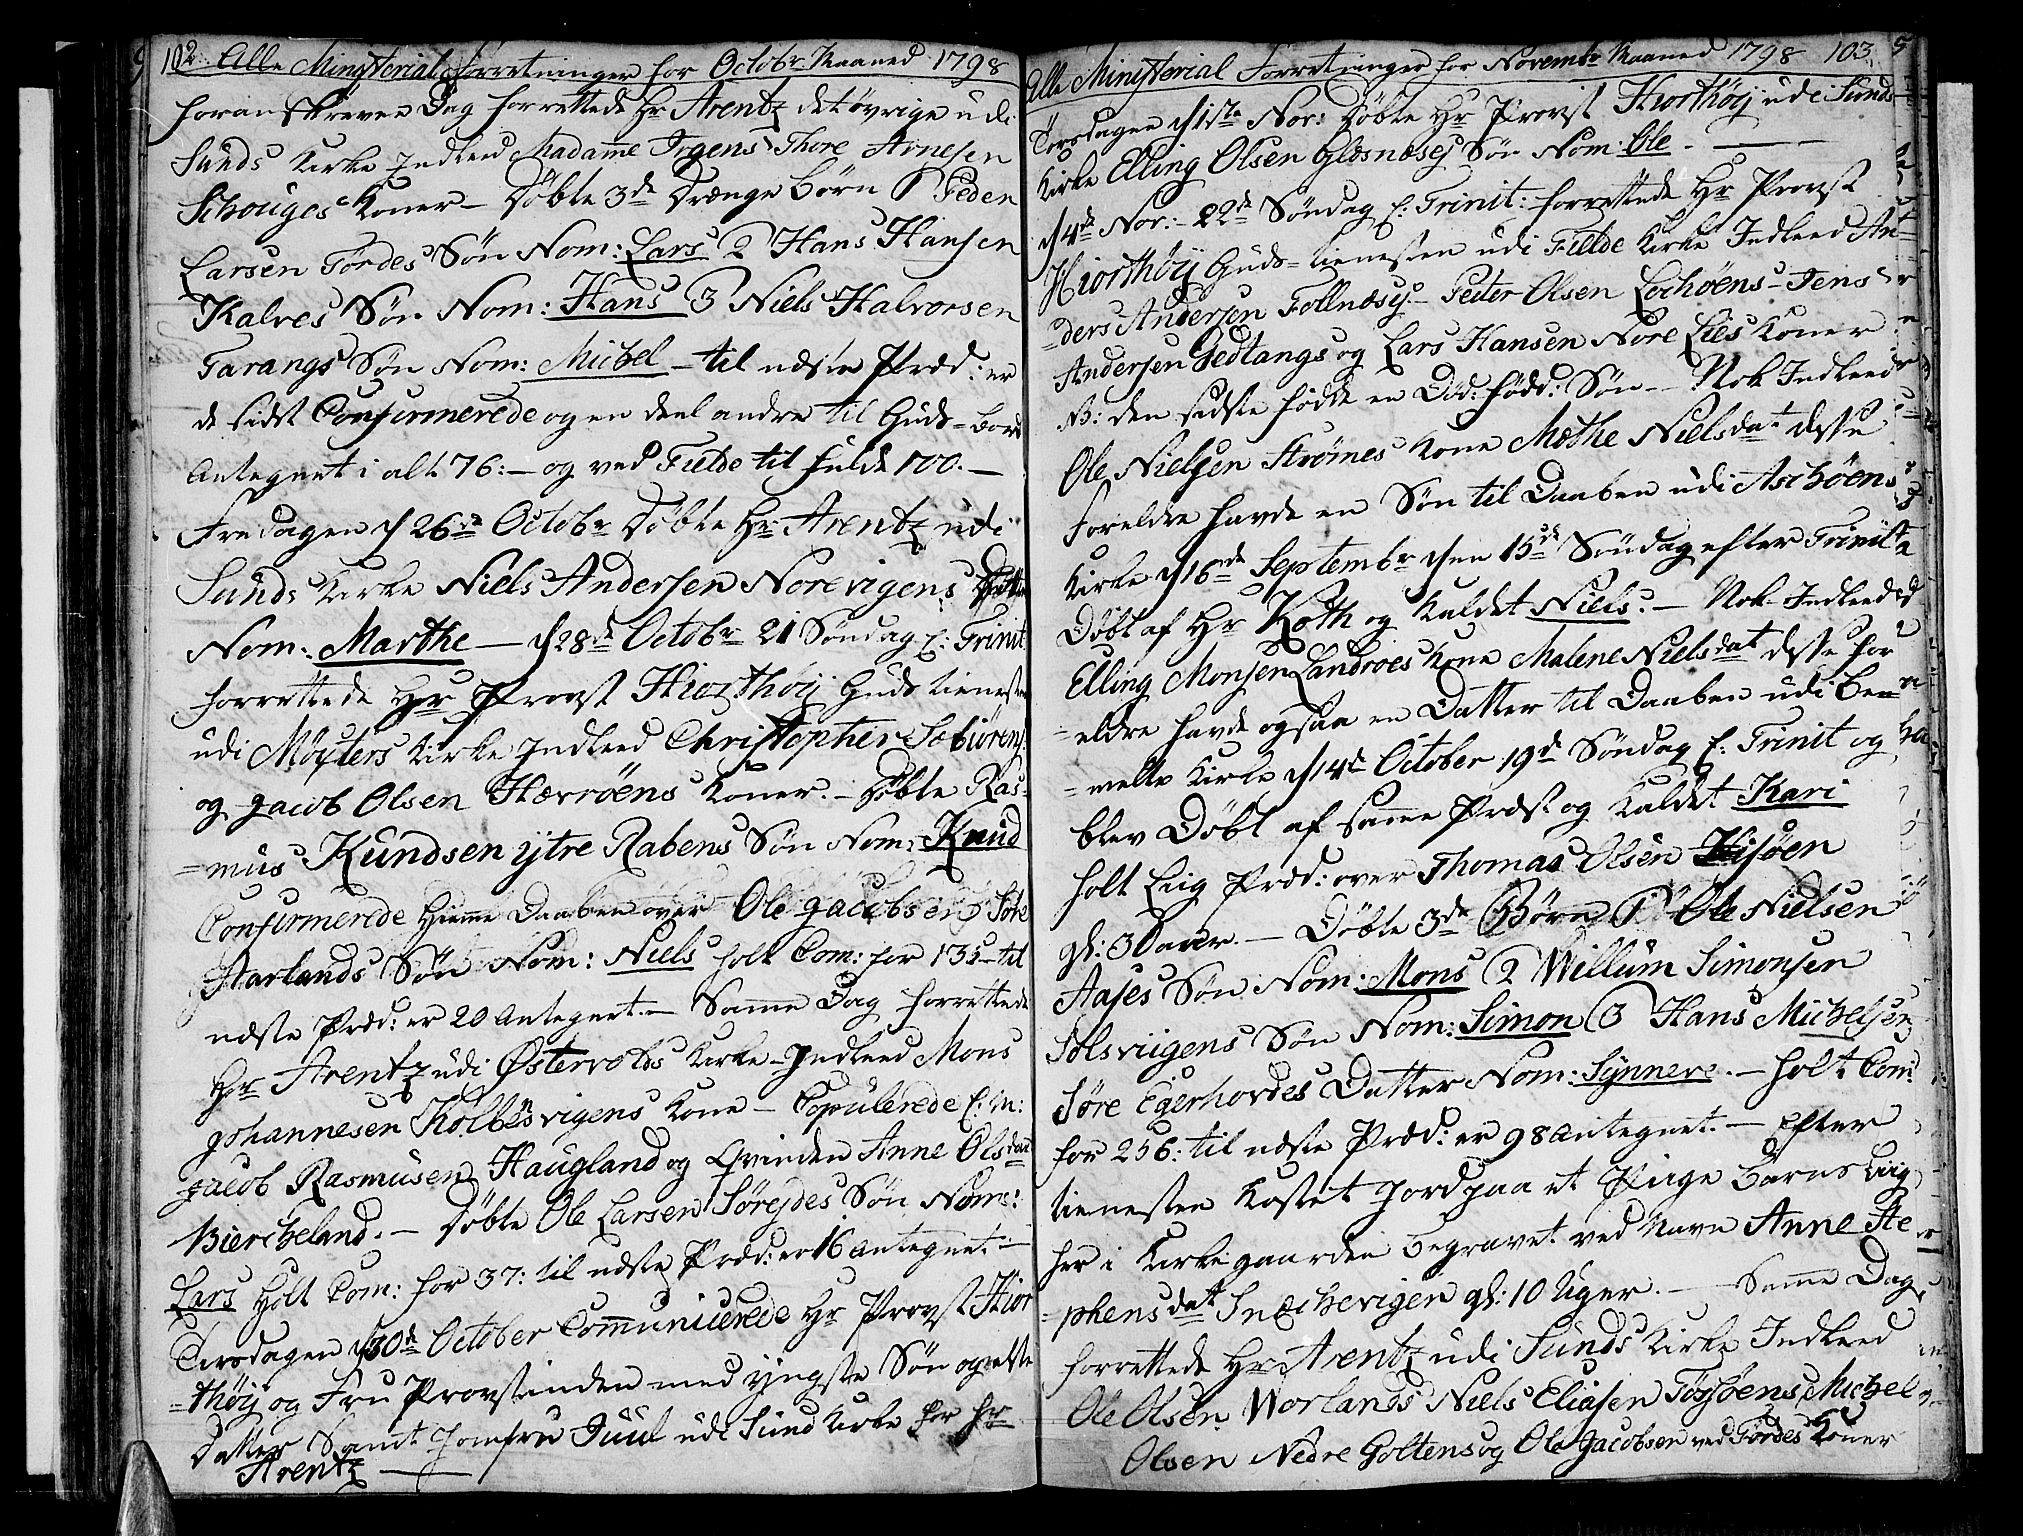 102. Alle Ministerial forretninger for Octobr Maaned 1798
foranskreven Dag forrettede Hr Arentz det övrige udi
Sunds Kirke Indleed Madamme Irgens Thore Arnesen
Schouges Koner – Döbte 3de Drænge börn 1 Peder
Larsen Tördes Søn Nom: Lars 2 Hans Hansen
Kalves Søn Nom: Hans 3 Niels Halvorsen
Tarangs Søn Nom: Michel – til næste Præd: er
de sidst Confirmerede og en deel andre til Guds-bord
Antegnet i alt 76: – og ved Fielde til fulde 100. –
Fredagen d 26de Octobr Döbte Hr Arentz udi
Sunds Kirke Niels Andersen Norevigens Datter
Nom: Marthe – d 28de Octobr 21 Söndag E: Trinit
forrettede Hr Provst Hiorthöy Guds tienesten
udi Möcters Kirke Indleed Christopher Sæbiörens:
og Jacob Olsen Hævröens Koner. – Döbte Ras-
=mus Kundsen ytre Rabens Søn Nom: Knud
Confirmerede Hiemme Daaben over Ole Jacobsen Söre
Starlands Søn Nom: Niels holt Com: for 135 – til
næste Præd: er 20 Antegnet. – Samme Dag forrettede
Hr Arentz udi Østervolds Kirke – Indleed Mons
Johannesen Kolbesvigens Kone – Copulerede E: M:
Jacob Rasmusen Haugland og Qvinden Anne Olsdat
Biercheland. – Döbte Ole Larsen Sörejdes Søn Nom:
Lars Holt Com: for 37: til næste Præd: er 16 antegnet. –
Tirsdagen d 30de October Communicerede Hr Provst Hior
=thöy og Fru Provstinden med yngste Søn og ælste
Datter Samt Jomfru Juul udi Sund Kirke for Hr
Arentz —
Alle Ministerial Forretninger for Novembr Maaned 1798 103.
Torsdagen d 1ste Nov: Döbte Hr Provst Hiorthöy udi Sunds
Kirke Elling Olsen Glesnæsej Søn Nom: Ole. –
d 4de Nov: – 22de Söndag E: Trinit: forrettede Hr Provst
Hiorthöy Guds=tienesten udi Fielde Kirke Indleed An=
=ders Andersen Follnæsej – Peiter Olsen Lochöens – Jens
Andersen Gedtangs og Lars Hansen Nore Lies Koner
NB: den sidste fødde en Död: född: Søn – Nok Indleed
Ole Nielsen Strömes Kone Mothe Nielsdat desse
Foreldre havde en Søn til Daaben udi Aschöens
Kirke d 16de Septembr den 15de Söndag efter Trinit
Döbt af Hr Koth og Kaldet Niels. – Nok Indleed
Elling Monsen Landroes Kone Malene Nielsdat desse for
=eldre havde ogsaa en Datter til Daaben udi ben=
=melte Kirke d 14de October 19de Söndag E: Trinit og
blev Döbt af samme Præst og Kaldet Kari
holt Liig Præd: over Thomas Olsen Hisöen
gl: 3 Dager. – Döbte 3de Börn 1 Ole Nielsen
Aases Søn Nom: Mons 2 Willum Simonsen
Solsviigens Søn Nom: Simon 3 Hans Michelsen
Söre Egerhovdes Datter Nom: Synneve. – holt Com:
for 256: til næste Præd: er 98 antegnet. – Efter
tienesten Kastet Jord paa et Piige barns Liig
her i Kirkegaarden begravet ved Navn Anne Ste
=phensdat Snechevigen gl: 10 Uger. – Samme Dag
forrettede Hr Arentz udi Sunds Kirke Indleed
Ole Olsen Worlands Niels Eliasen Tösöens Michel
Olsen Nedre Goltens og Ole Jacobsen ved Tördes Koner